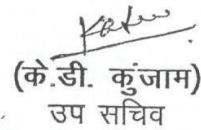 (के.डी. कुंजाम)
उप सचिव